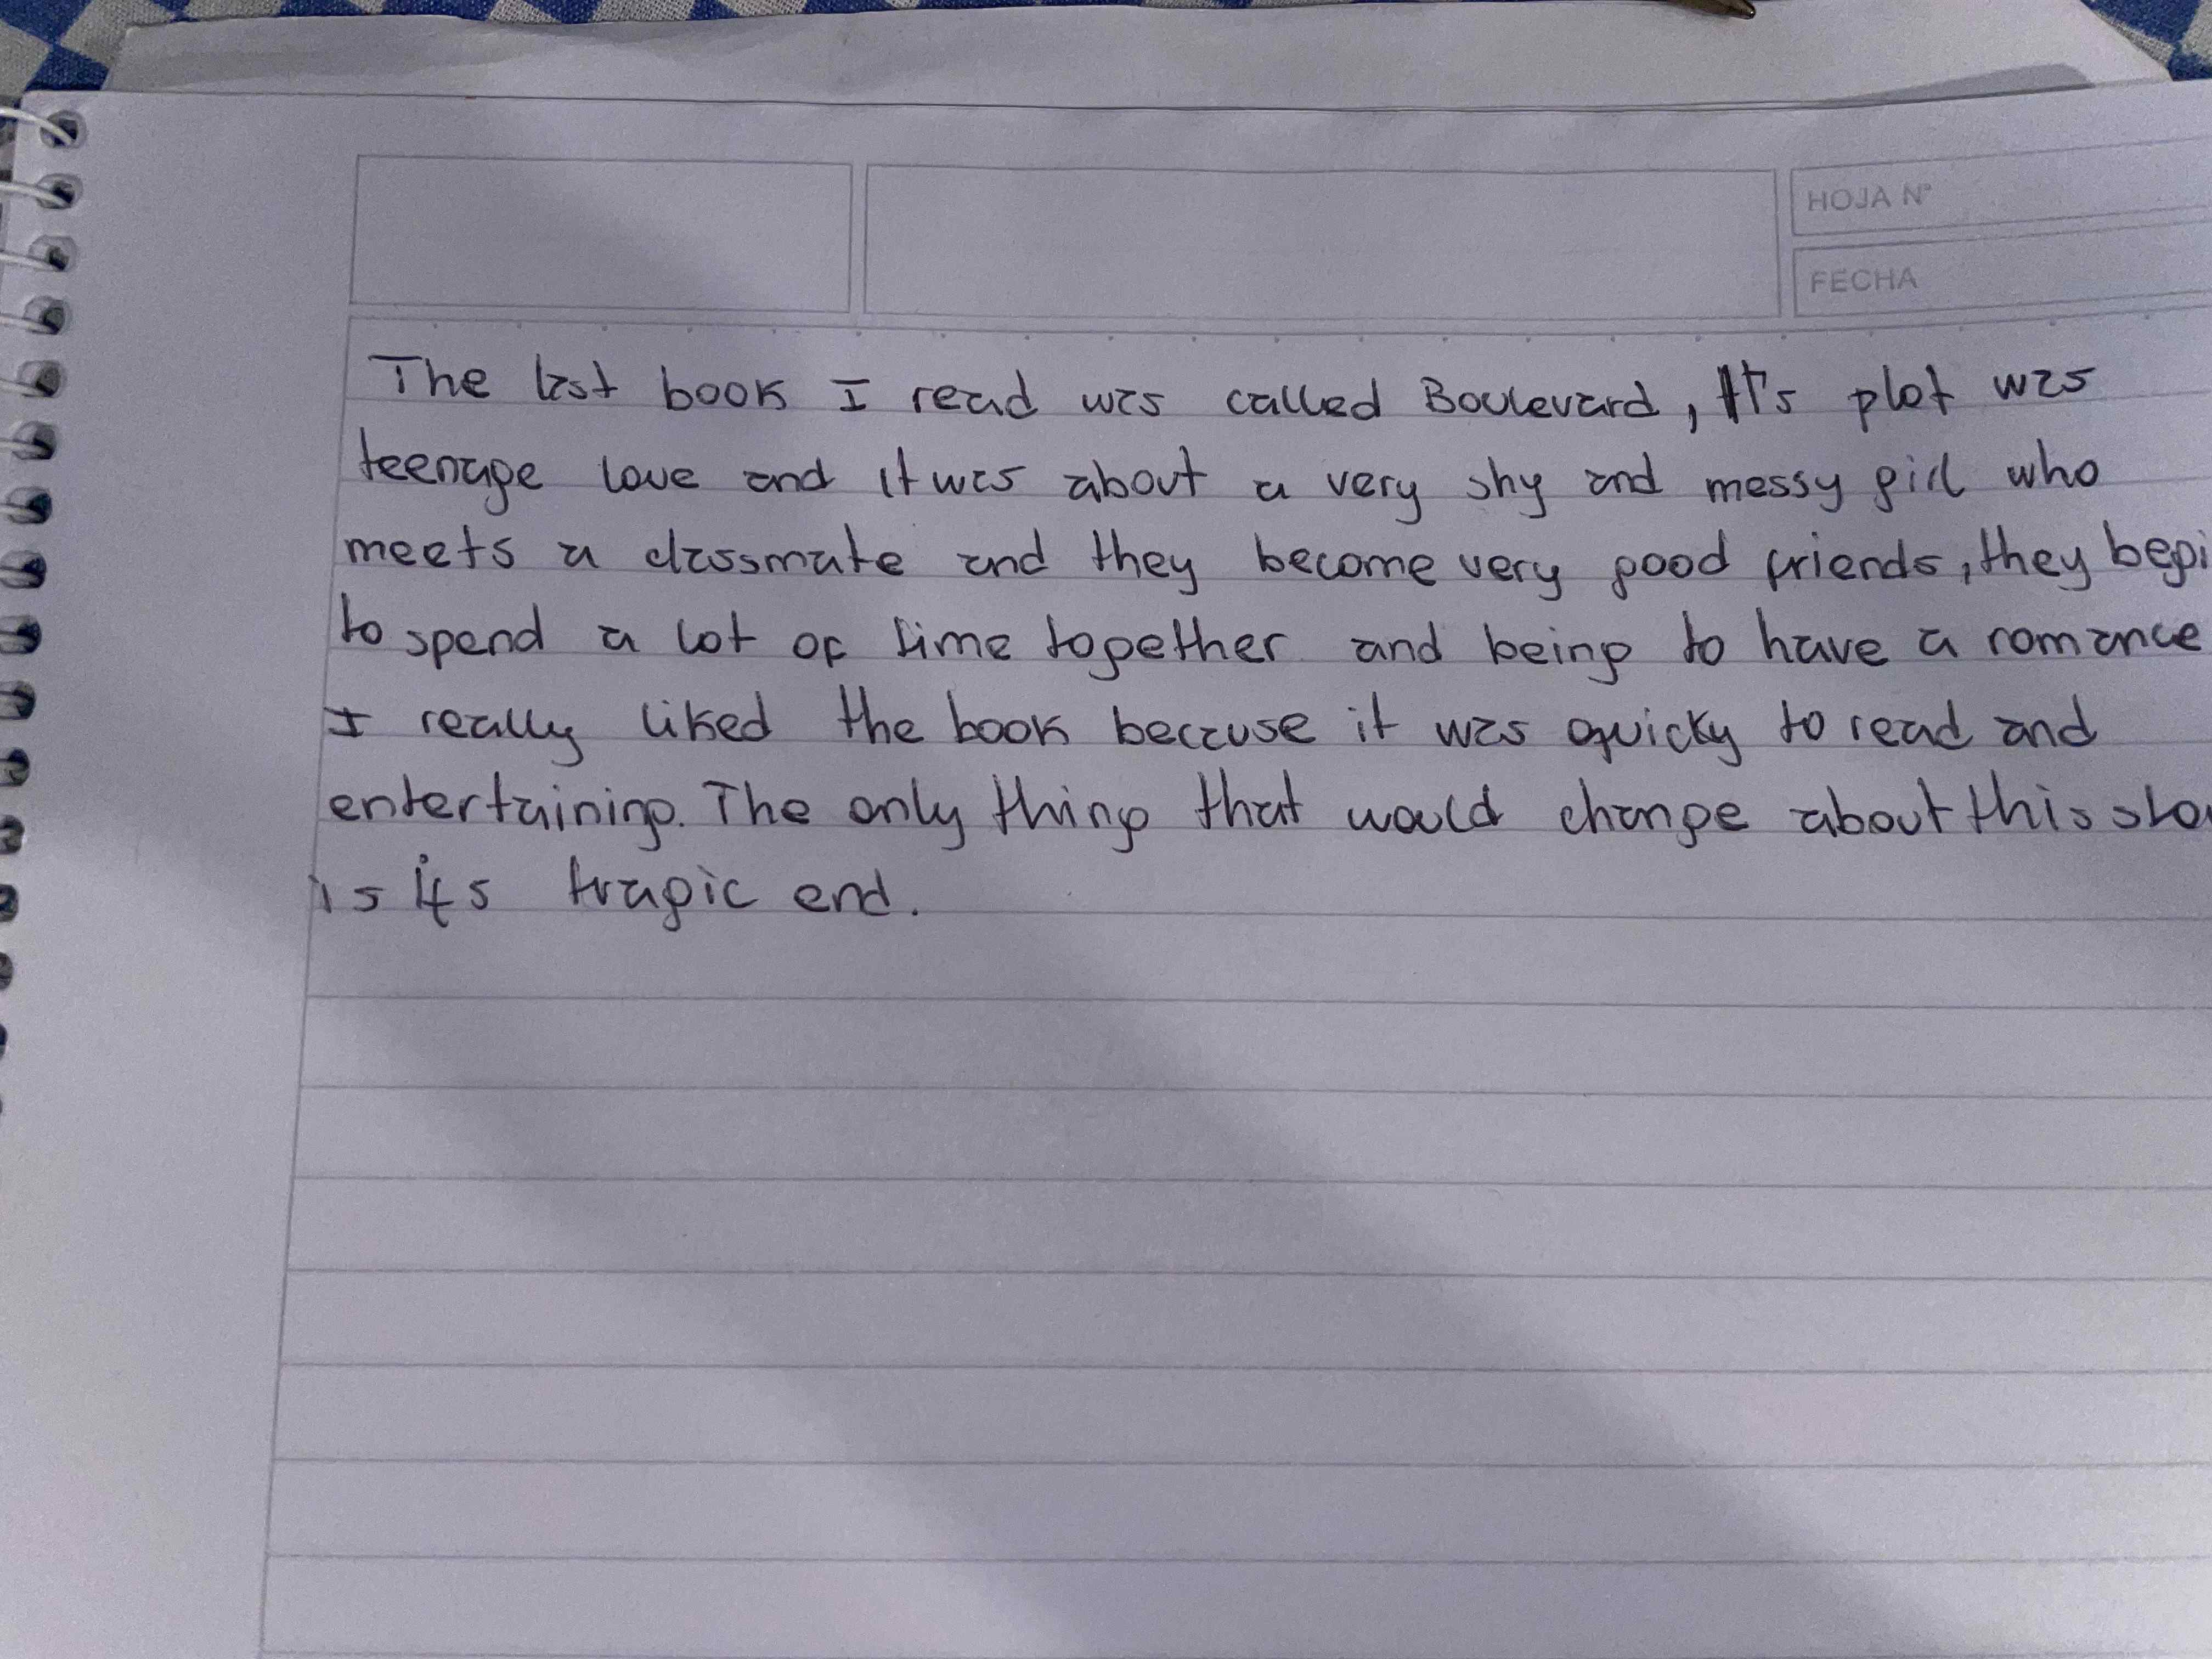 HOJA N°
FECHA
The last book I read was called Boulevard, It's plot was
teenage love and it was about a very shy and messy girl who
meets a classmate and they become very good friends, they begi
to spend a lot of time together and being to have a romance
I really liked the book because it was quicky to read and
entertaining. The only thing that would change about this sto
is its tragic end.